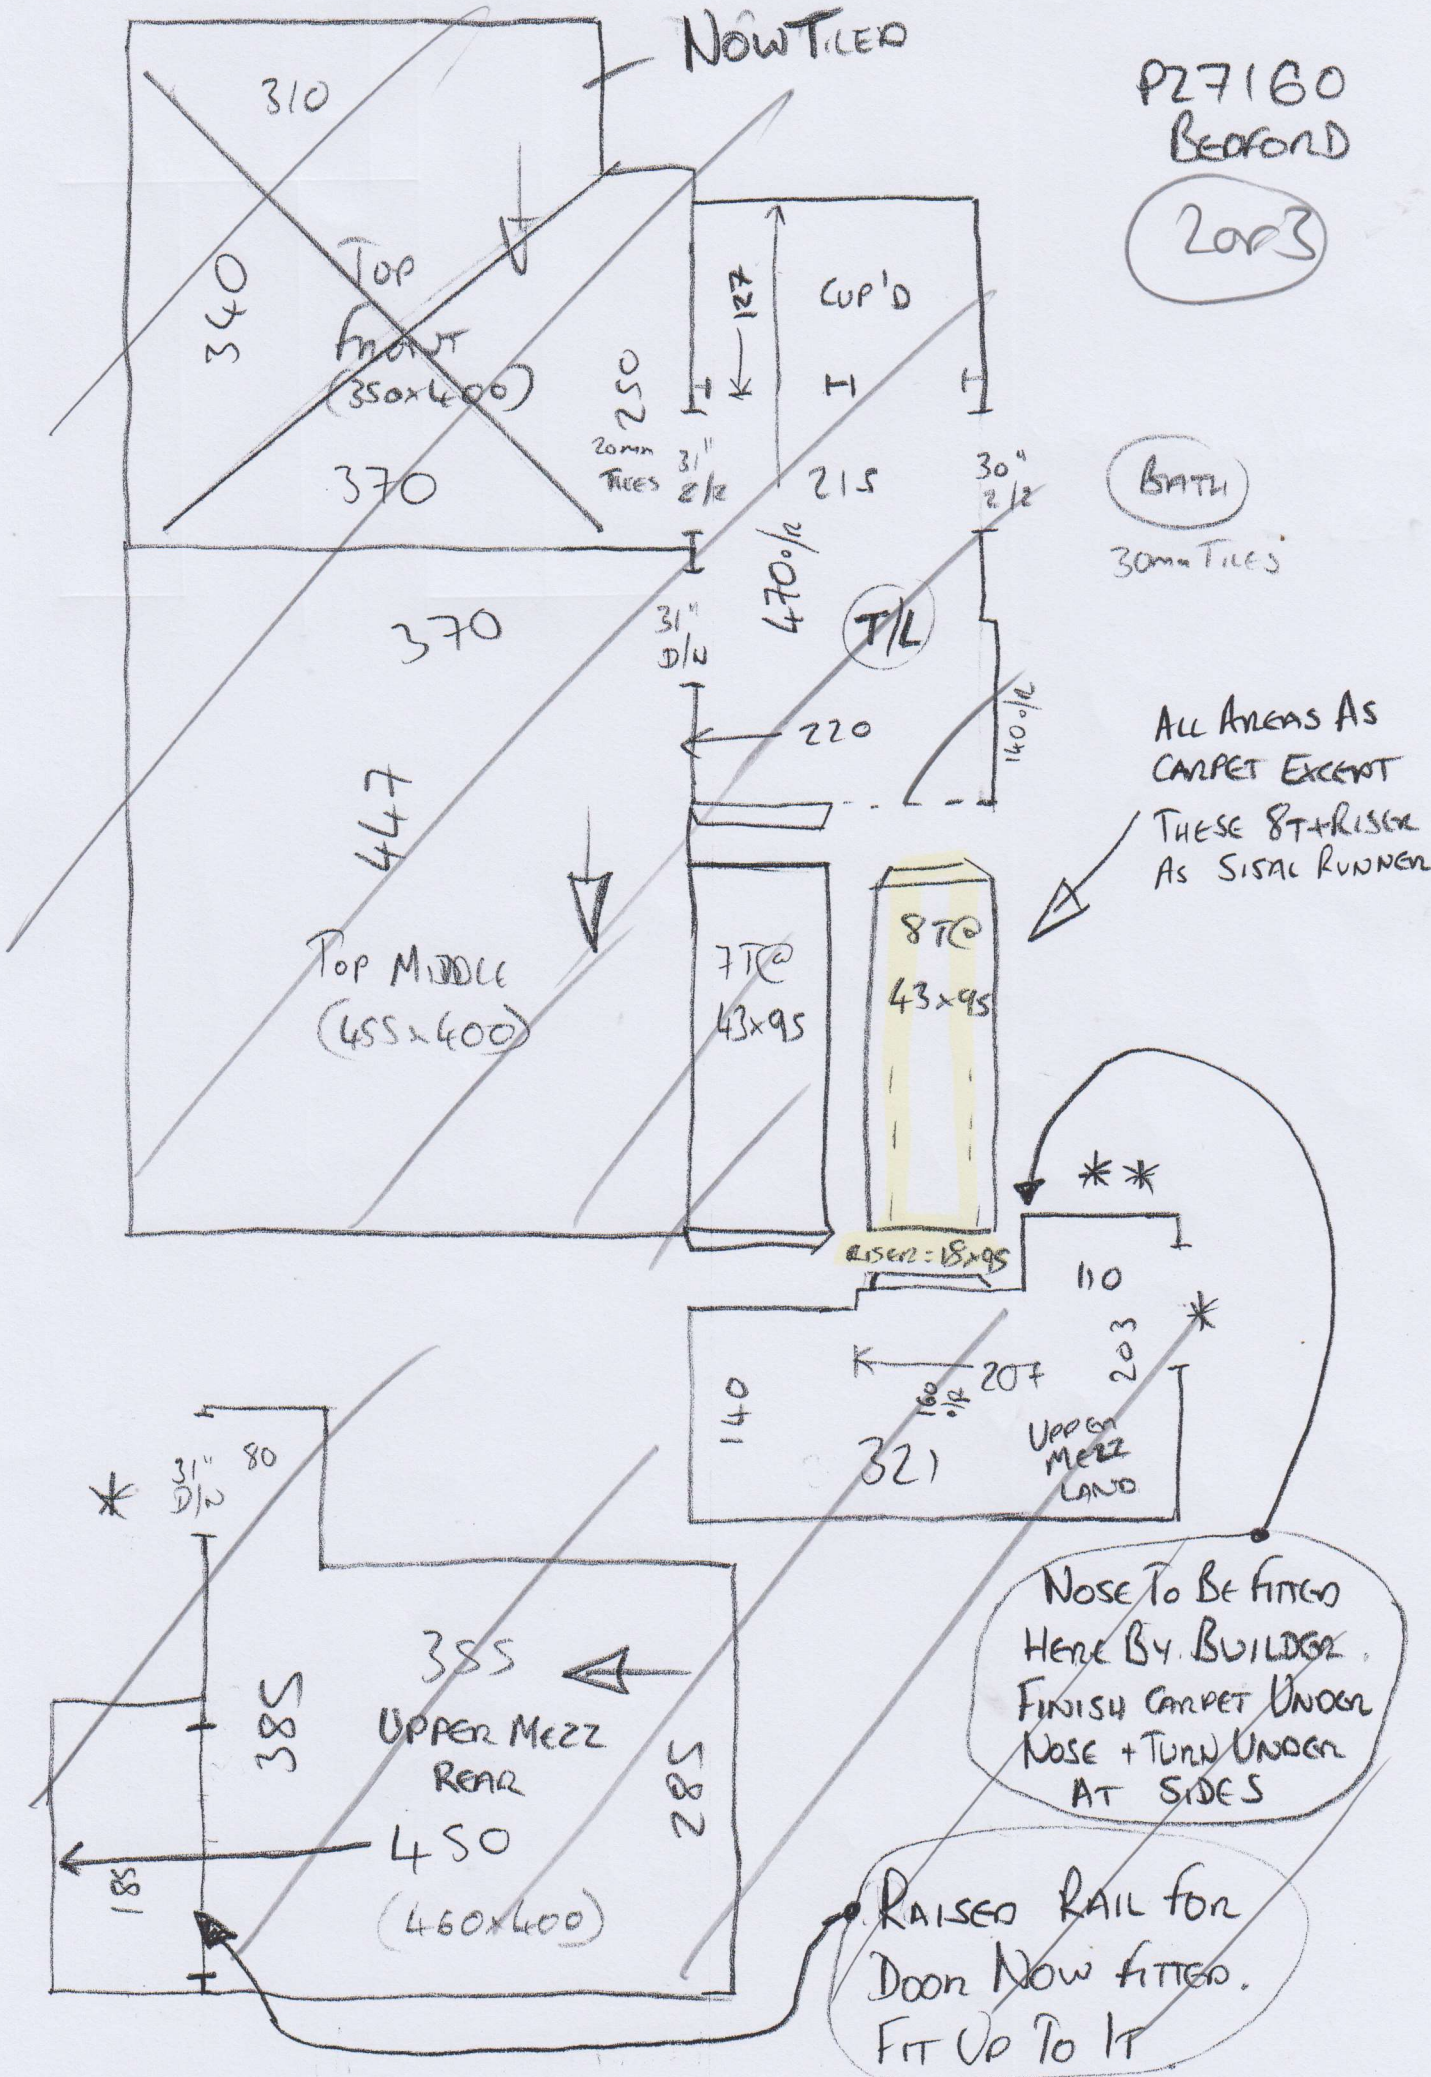 NOW TILED
P27160
BEDFORD
2 OF 3
310
340
TOP
FRONT
(350x400)
370
250
20mm
TILES
31"
Z/R
127
CUP'D
215
30"
Z/R
BATH
30mm TILES
470 o/r
T/L
370
31"
D/N
220
140 o/r
447
TOP MIDDLE
(455x400)
ALL AREAS AS
CARPET EXCEPT
THESE 8T+RISER
AS SISAL RUNNER
7T@
43x95
8T@
43x95
RISER = 18x95
**
110
*
203
207
160
o/r
140
321
UPPER
MEZZ
LAND
*
31"
D/N
80
385
355
UPPER MEZZ
REAR
285
450
185
(460x400)
NOSE TO BE FITTED
HERE BY BUILDER.
FINISH CARPET UNDER
NOSE + TURN UNDER
AT SIDES
RAISED RAIL FOR
DOOR NOW FITTED.
FIT UP TO IT